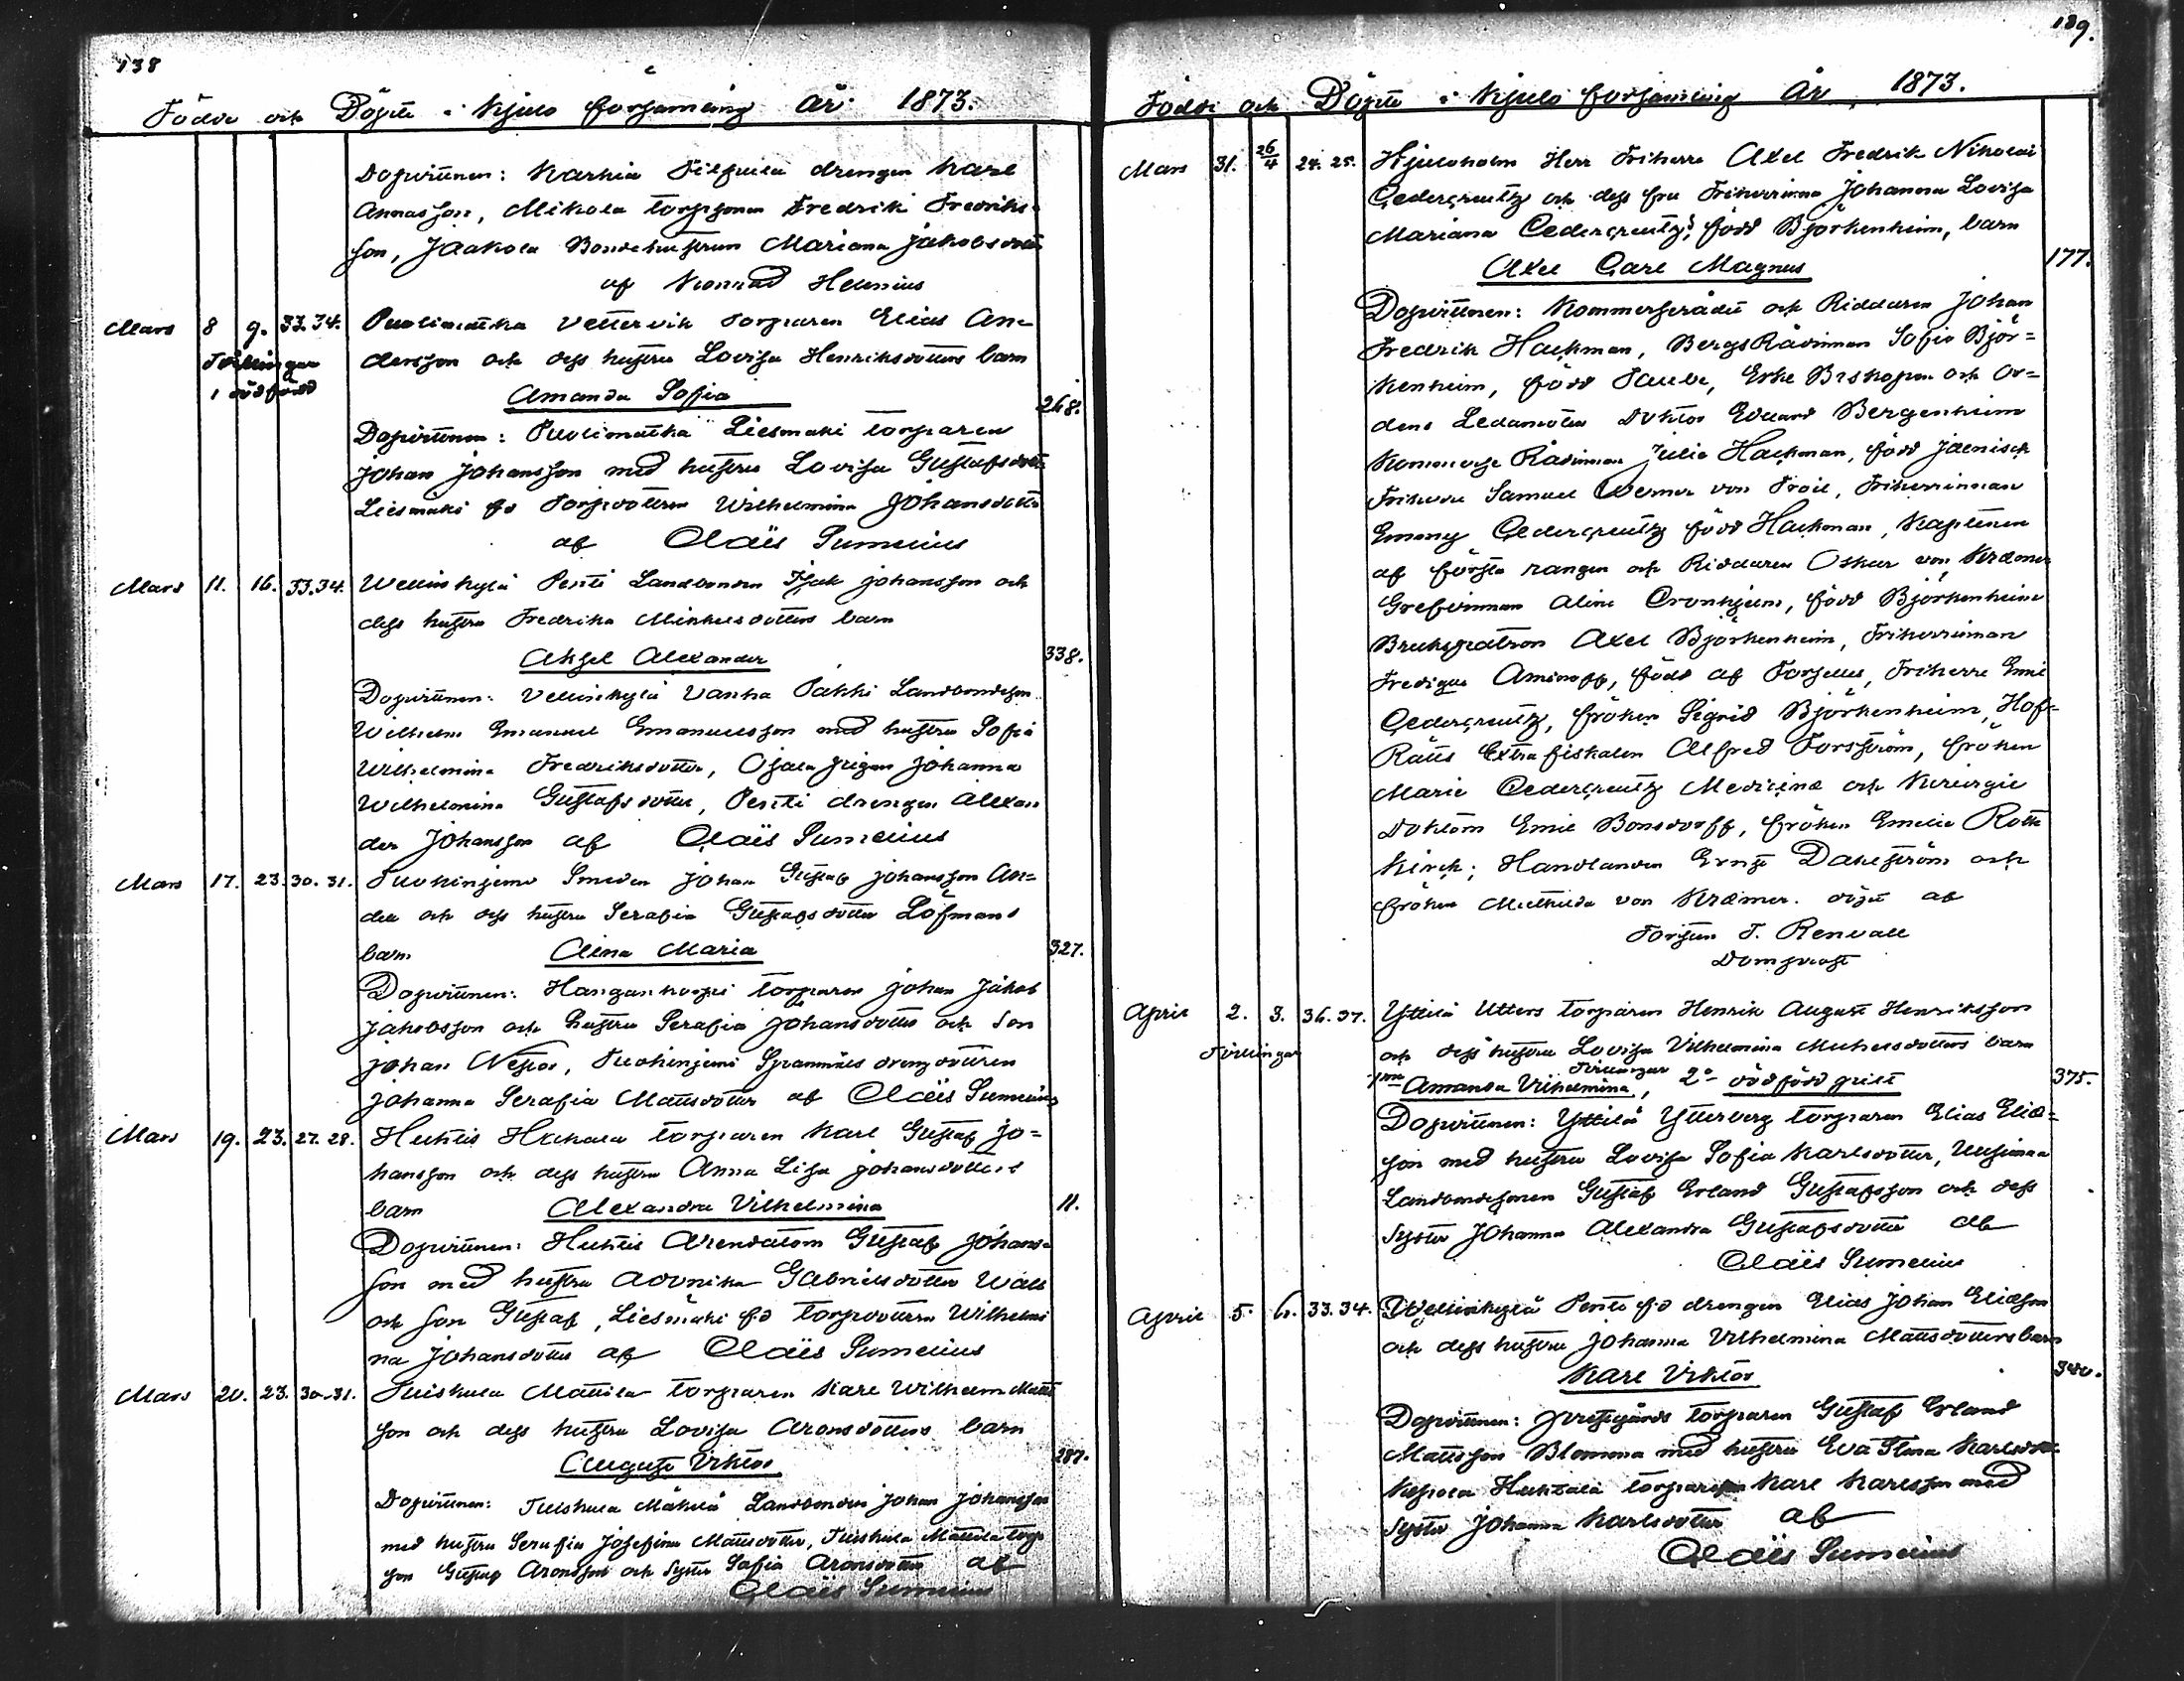 138
Födde och Döpte i Kjulo församling år 1873.
Dopvittnen: Karhia Filpula drengen Karl
Annasson, Mikola torpsonen Fredrik Fredriks-
son, Jaakola Bondehustrun Mariana Jakobsdotter
af Konrad Helenius
Mars 8 9. 33.34. Puolimatka Vettervik Torparen Elias An-
Tvillingar
1 dödfödd
dersson och dess hustru Lovisa Henriksdotters barn
Amanda Sofia 268.
Dopvittnen: Puolimatka Liesmäki torparen
Johan Johansson med hustru Lovisa Gustafsdotter
Liesmäki fd Torpdottren Wilhelmina Johansdotter
af Claës Sumelius
Mars 11. 16. 33.34. Wellinkylä Pentti Landbonden Isak Johansson och
dess hustru Fredrika Mikkelsdotters barn
Aksel Alexander 338.
Dopvittnen: Vellinkylä Vanha Pakki Landbondeson
Wilhelm Emanuel Emanuelsson med hustru Sofia
Wilhelmina Fredriksdotter, Ojala pigan Johanna
Wilhelmina Gustafsdotter, Pentti drengen Alexan
der Johansson af Claës Sumelius
Mars 17. 23. 30. 31. Tuokinjemi Smeden Johan Gustaf Johansson An-
dell och dess hustru Serafia Gustafsdotter Löfmans
barn Aina Maria 327.
Dopvittnen: Hangankorpi torparen Johan Jakob
Jakobsson och hustru Serafia Johansdotter och Son
Johan Nestor, Tuokinjemi Sprannils drengdottren
Johanna Serafia Mattsdotter af Claës Sumelius
Mars 19. 23. 27. 28. Huhtis Hakala torparen Karl Gustaf Jo-
hansson och dess hustru Anna Lisa Johansdotters
barn Alexandra Vilhelmina 11.
Dopvittnen: Huhtis Arendatorn Gustaf Johans-
son med hustru Lovnika Gabrielsdotter Wall
och Son Gustaf, Liesmäki fd torpdottren Wilhelmi
na Johansdotter af Claës Sumelius
Mars 20. 23. 30-31. Tuiskula Mattila torparen Karl Wilhelm Matts
son och dess hustru Lovisa Aronsdotters barn
August Viktor 287.
Dopvittnen: Tuiskula Mäkilä Landbonden Johan Johansson
med hustru Serafia Josefina Mattsdotter, Tuiskula Mattila torp
son Gustaf Aronsson och Syster Sofia Aronsdotter af
Claës Sumelius
139.
Födde och Döpte i Kjulo församling År 1873.
Mars 31. 26/4 24. 25. Kjuloholm Herr Friherre Axel Fredrik Nikolai
Cedercreutz och dess fru Friherrinna Johanna Lovisa
Mariana Cedercreutz, född Björkenheim, barn
Axel Carl Magnus 177.
Dopvittnen: Kommerserådet och Riddaren Johan
Fredrik Hackman, BergsRådinnan Sofie Björ-
kenheim, född Taube, Erke Biskopen och Or-
dens Ledamoten Doktor Edvard Bergenheim
Kommerse Rådinnan Julie Hackman, född Jaenisch
Friherre Samuel Werner von Troil, Friherrinnan
Emmy Cedercreutz född Hackman, Kaptenen
af första rangen och Riddaren Oskar von Kræmer
Grefvinnan Aline Cronhjelm, född Björkenheim
Brukspatron Axel Björkenheim, Friherrinnan
Fredique Aminoff, född af Forselles, Friherre Emil
Cedercreutz, fröken Sigrid Björkenheim, Hof-
Rätts Extra fiskalen Alfred Forsström, fröken
Marie Cedercreutz Medicinæ och Kirurgie
Doktorn Emil Bonsdorff, fröken Emelie Roth
Kirch; Handlanden Ernst Dahlström och
fröken Mathilda von Kræmer. döpt af
Torsten T. Renvall
Domprost
April 2. 3. 36. 37. Yttilä Utters torparen Henrik August Henriksson
Tvillingar
och dess hustru Lovisa Vilhelmina Mickelsdotters barn
Tvillingar
1mo Amanda Vilhelmina, 2o dödfödd gosse 375.
Dopvittnen: Yttilä Ytterberg torparen Elias Elias-
son med hustru Lovisa Sofia Karlsdotter, Uusimaa
Landbondesonen Gustaf Erland Gustafsson och dess
Syster Johanna Alexandra Gustafsdotter af
Claës Sumelius
April 5. 6. 33.34. Wellinkylä Pentti fd drengen Elias Johan Eliasson
och dess hustru Johanna Vilhelmina Mattsdotters barn
Karl Viktor 340.
Dopvittnen: Prestgårds torparen Gustaf Erland
Mattsson Blomma med hustru Eva Stina Karlsdotter
Huhtala Karl Karlsson med
Syster Johanna Karlsdotter af
Claës Sumelius